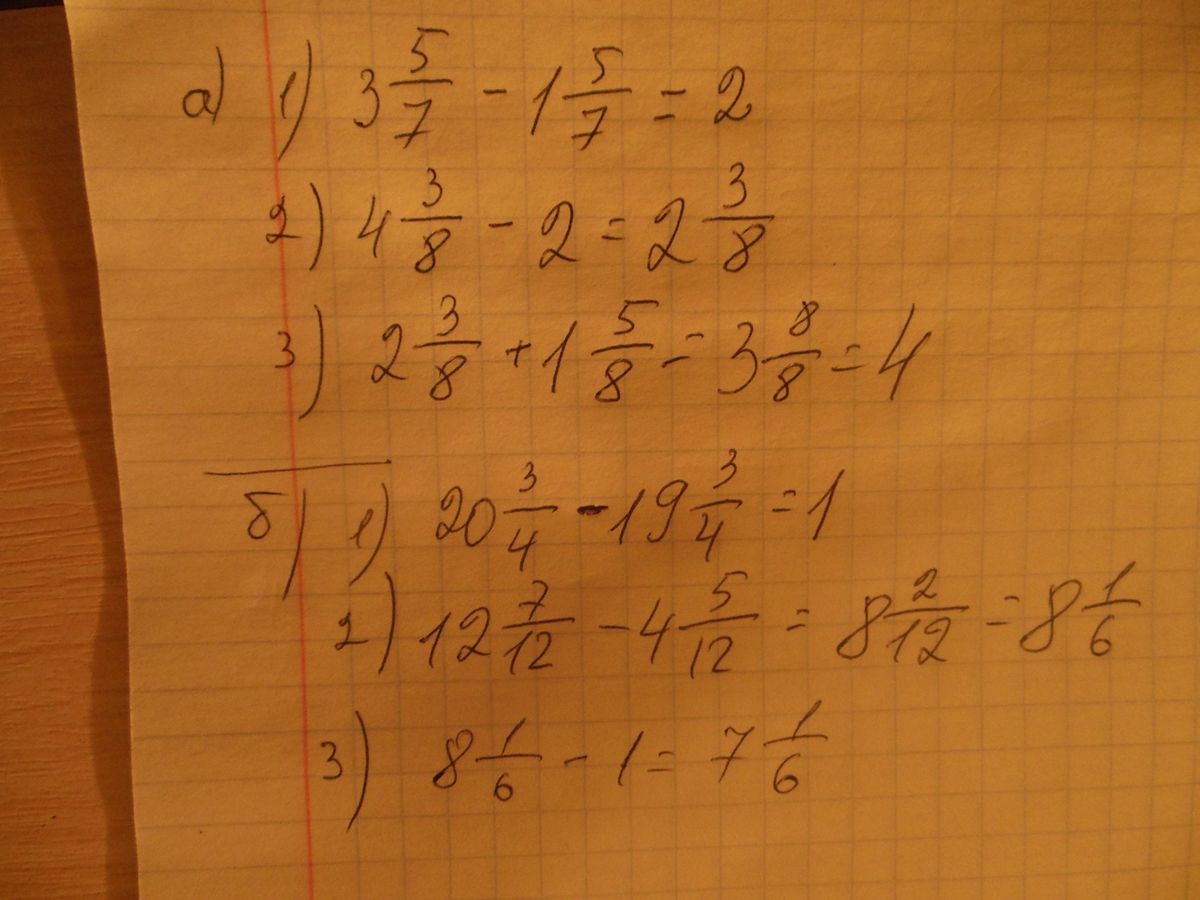 а) 1) 3 5/7 - 1 5/7 = 2
2) 4 3/8 - 2 = 2 3/8
3) 2 3/8 + 1 5/8 = 3 8/8 = 4
б) 1) 20 3/4 - 19 3/4 = 1
2) 12 7/12 - 4 5/12 = 8 2/12 = 8 1/6
3) 8 1/6 - 1 = 7 1/6